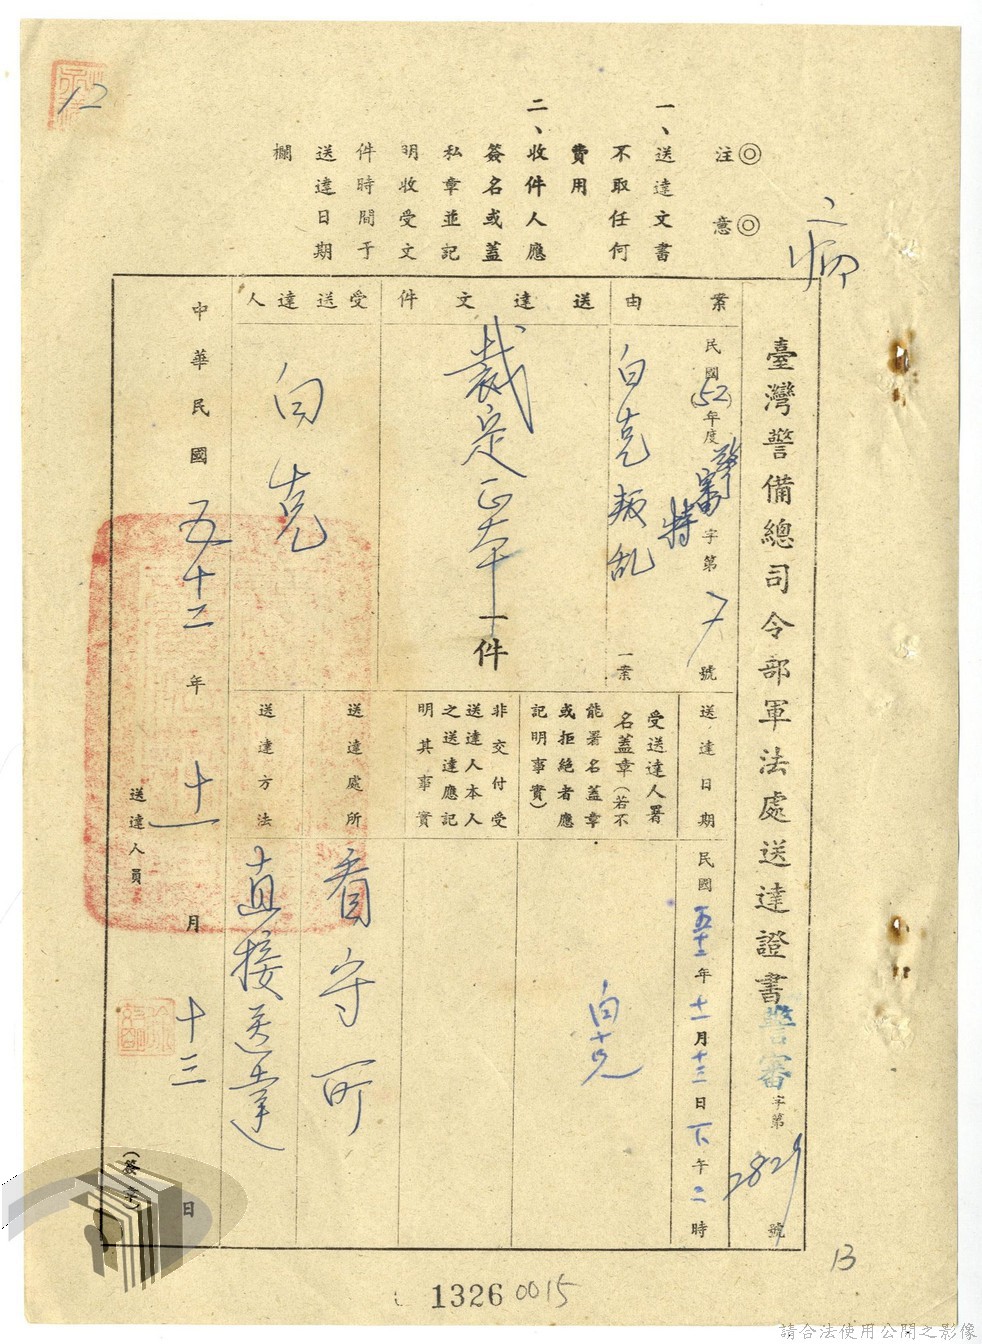 12
注意
一、送達文書
不取任何
費用
二、收件人應
簽名或蓋
私章並記
明收受文
件時間于
送達日期
欄
臺灣警備總司令部軍法處送達證書警審字第2829號
案由
民國(52)年度警審特字第7號
白克叛乱一案
送達文件
裁定正本一件
受送達人
白克
送達日期
民國五十二年十一月十三日下午二時
受送達人署
名蓋章(若不
能署名蓋章
或拒絕者應
記明事實)
白克
非交付受
送達人本人
之送達應記
明其事實
送達處所
看守所
送達方法
直接送達
中華民國五十二年十一月十三日
送達人員
(簽章)
13
1326 0015
請合法使用公開之影像